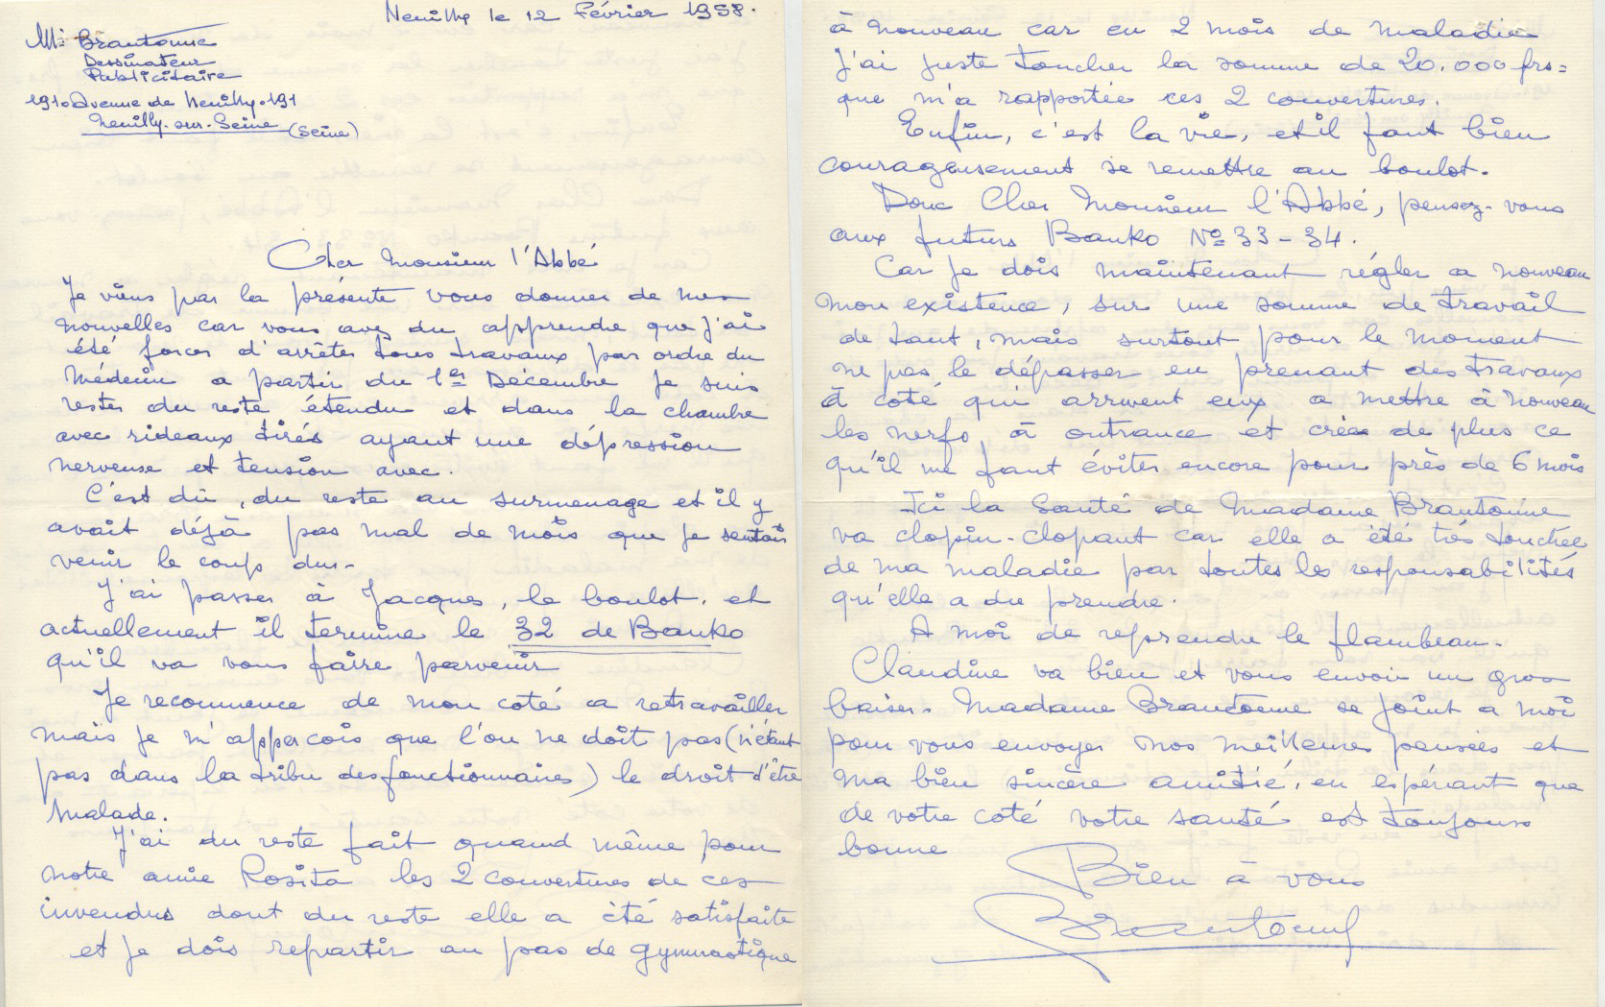 Neuilly le 12 Février 1958.
Mr Brantonne
Dessinateur
Publicitaire
191. Avenue de Neuilly. 191
Neuilly-sur-Seine (Seine)
Cher Monsieur l'Abbé
Je viens par la présente vous donner de mes
nouvelles car vous avez du apprendre que j'ai
été forcer d'arrêter tous travaux par ordre du
Médecin a partir du 1er Décembre je suis
rester du reste étendu et dans la chambre
avec rideaux tirés ayant une dépression
nerveuse et tension avec.
C'est du, du reste au surmenage et il y
avait déjà pas mal de mois que je sentais
venir le coup dur.-
J'ai passer à Jacques, le boulot. et
actuellement il termine le 32 de Banko
qu'il va vous faire parvenir
Je recommence de mon coté a retravailler
mais je m'apperçois que l'on ne doit pas (n'étant
pas dans la tribu des fonctionnaires) le droit d'être
malade.
J'ai du reste fait quand même pour
notre amie Rosita les 2 couvertures de ces
invendus dont du reste elle a été satisfaite
et je dois repartir au pas de gymnastique
à nouveau car en 2 mois de maladie
j'ai juste toucher la somme de 20.000 frs=
que m'a rapportée ces 2 couvertures.
Enfin, c'est la vie, et il faut bien
courageusement se remettre au boulot.
Donc Cher Monsieur l'Abbé, pensez-vous
aux futurs Banko No 33-34.
Car je dois maintenant régler a nouveau
mon existence, sur une somme de travail
de tant, mais surtout pour le moment
ne pas le dépasser en prenant des travaux
à coté qui arrivent eux a mettre à nouveau
les nerfs, à outrance et créer de plus ce
qu'il me faut éviter encore pour près de 6 mois
Ici la Santé de Madame Brantonne
va clopin-clopant car elle a été très touchée
de ma maladie par toutes les responsabilités
qu'elle a du prendre.
A moi de reprendre le flambeau.
Claudine va bien et vous envoi un gros
baiser. Madame Brantonne se joint a moi
pour vous envoyer nos meilleures pensées et
ma bien sincère amitié, en espérant que
de votre coté votre santé est toujours
bonne
Bien à vous
Brantonne